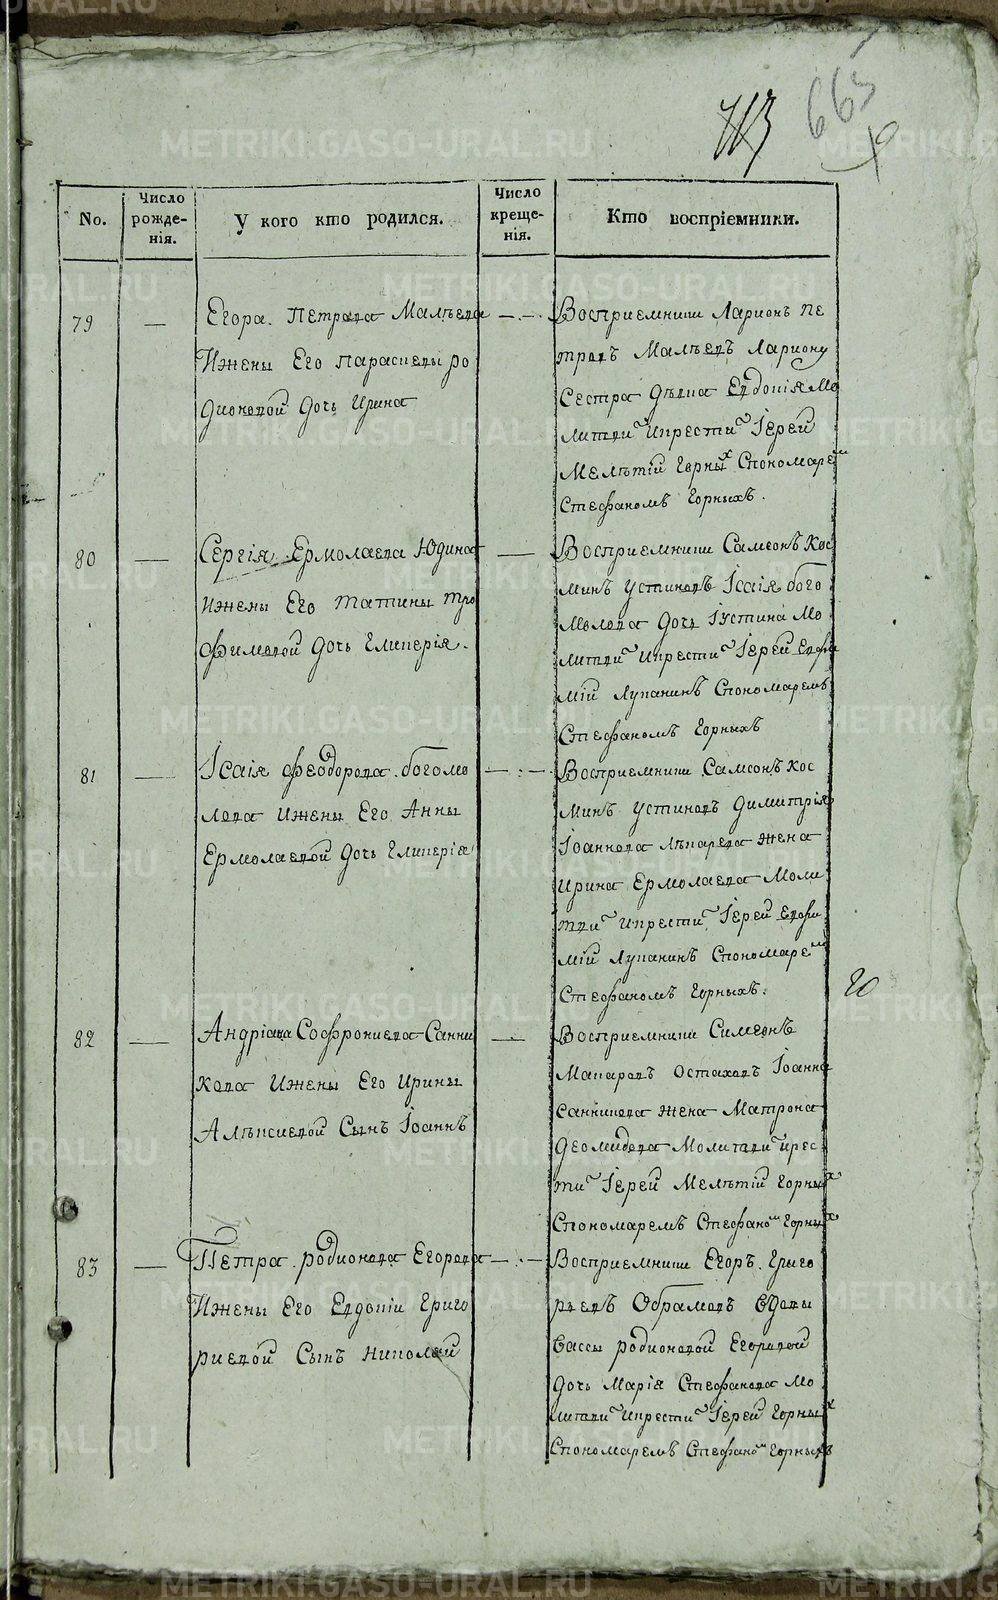 713
663
No.
Число рожде-нія.
У кого кто родился.
Число креще-нія.
Кто воспріемники.
79
Егора Петрова Мальцева
Ижены Его Параскевы ро
дионовой дочь Ирина
Восприемники Ларионъ пе
тровъ Мальцевъ Лариону
Сестра девка Евдокія мо
литви икрести Іерей
Мелѣтій Горных Спономарем
Стефаномъ Горныхъ.
80
Сергія Ермолаева Юдина
Ижены Его Татины Тро
фимовой дочь Гликерія.
Восприемники Самсонъ Кос
минъ устиновъ Ісаія бого
молова дочь Іустина мо
литви икрести Іерей Евфи
мій Лупанинъ Спономаремъ
Стефаномъ Горныхъ
81
Ісаія феодорова богомо
лова ижены Его Анны
Ермолаевой дочь Гликерія
Восприемники Самсонъ Кос
минъ устиновъ Димитрія
Іоаннова жена
Ирина Ермолаева Моли
тви икрести Іерей Евфи
мій Лупанинъ Спономарем
Стефаномъ Горныхъ.
20
82
Андріана Софрониева Санни
кова Ижены Его Ирины
Алѣксиевой Сынъ Іоаннъ
Восприемники Симеонъ
Макаровъ Остаховъ Іоанна
санникова жена Матрона
Деомидова Молитви икрес
ти Іерей Мелѣтій Горных
Спономаремъ Стефаном Горных
83
Петра родионова Егорова
Ижены Его Евдокіи Григо
риевой Сынъ николай
Восприемники Егоръ Григо
рьевъ Обрамовъ вдовы
Вассы родионовой Егоровой
дочь Марія Стефанова мо
литви икрести Іерей Горных
Спономаремъ Стефаном Горныхъ
METRIKI.GASO-URAL.RU